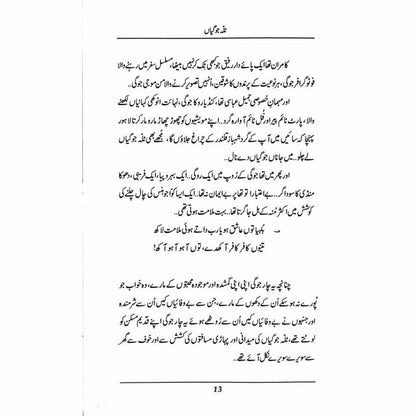 ٹلّہ جوگیاں
کامران تھا ایک پائے دار رفیق جو کبھی تک کر نہیں بیٹھا، مسلسل سفر میں رہنے والا
فوٹوگرافر جوگی، ہر نوعیت کے پرندوں کا شوقین، اُنہیں تصویر کرنے والا من موجی جوگی..
اور مہمانِ خصوصی جمیل عباسی تھا، کنڈیارو کا جوگی، نہایت انوکھی کہانیاں لکھنے
والا، پارٹ ٹائم پیر اور فُل ٹائم آوارہ گرد.. اپنے مویشیوں کو چھوڑ چھاڑ مارو مار کرتا لاہور
پہنچا کہ سائیں میں آپ کے گرد شہباز قلندر کے چراغ جلاؤں گا، مجھے بھی ٹلّہ جوگیاں
لے چلو.. میں جاناں جوگی دے نال..
اور پھر میں تھا جوگی کے رُوپ میں ایک روگی.. ایک بہروپیا، ایک فریبی، دھوکا
منڈی کا سوداگر.. بے اعتبارا تو تھا پر بے ایمان نہ تھا.. ایک ایسا کوا جو ہنس کی چال چلنے کی
کوشش میں اکثر ٹخنہ کے بل جا گرتا تھا.. بہت ملامت ہوتی تھی..
؎ بلھیا توں عاشق ہویا رب دا تے ہوئی ملامت لاکھ
تینوں کافر کافر آکھدے، توں آہو آہو آکھ!
چنانچہ یہ چار جوگی اپنی اپنی گمشدہ اور موجودہ محبتوں کے مارے، وہ خواب جو
پُورے نہ ہو سکے اُن کے دکھوں کے مارے، جن سے بے وفائیاں کیں اُن سے شرمندہ
اور جنہوں نے بے وفائیاں کیں اُن سے رُوٹھے ہوئے یہ چار جوگی اپنے قدیم مسکن کو
لوٹتے تھے، ٹلّہ جوگیاں کی میدانی اور پہاڑی مسافتوں کی کشش سے اور خوف سے گھر
سے سویرے سویرے نکل آئے تھے..
13